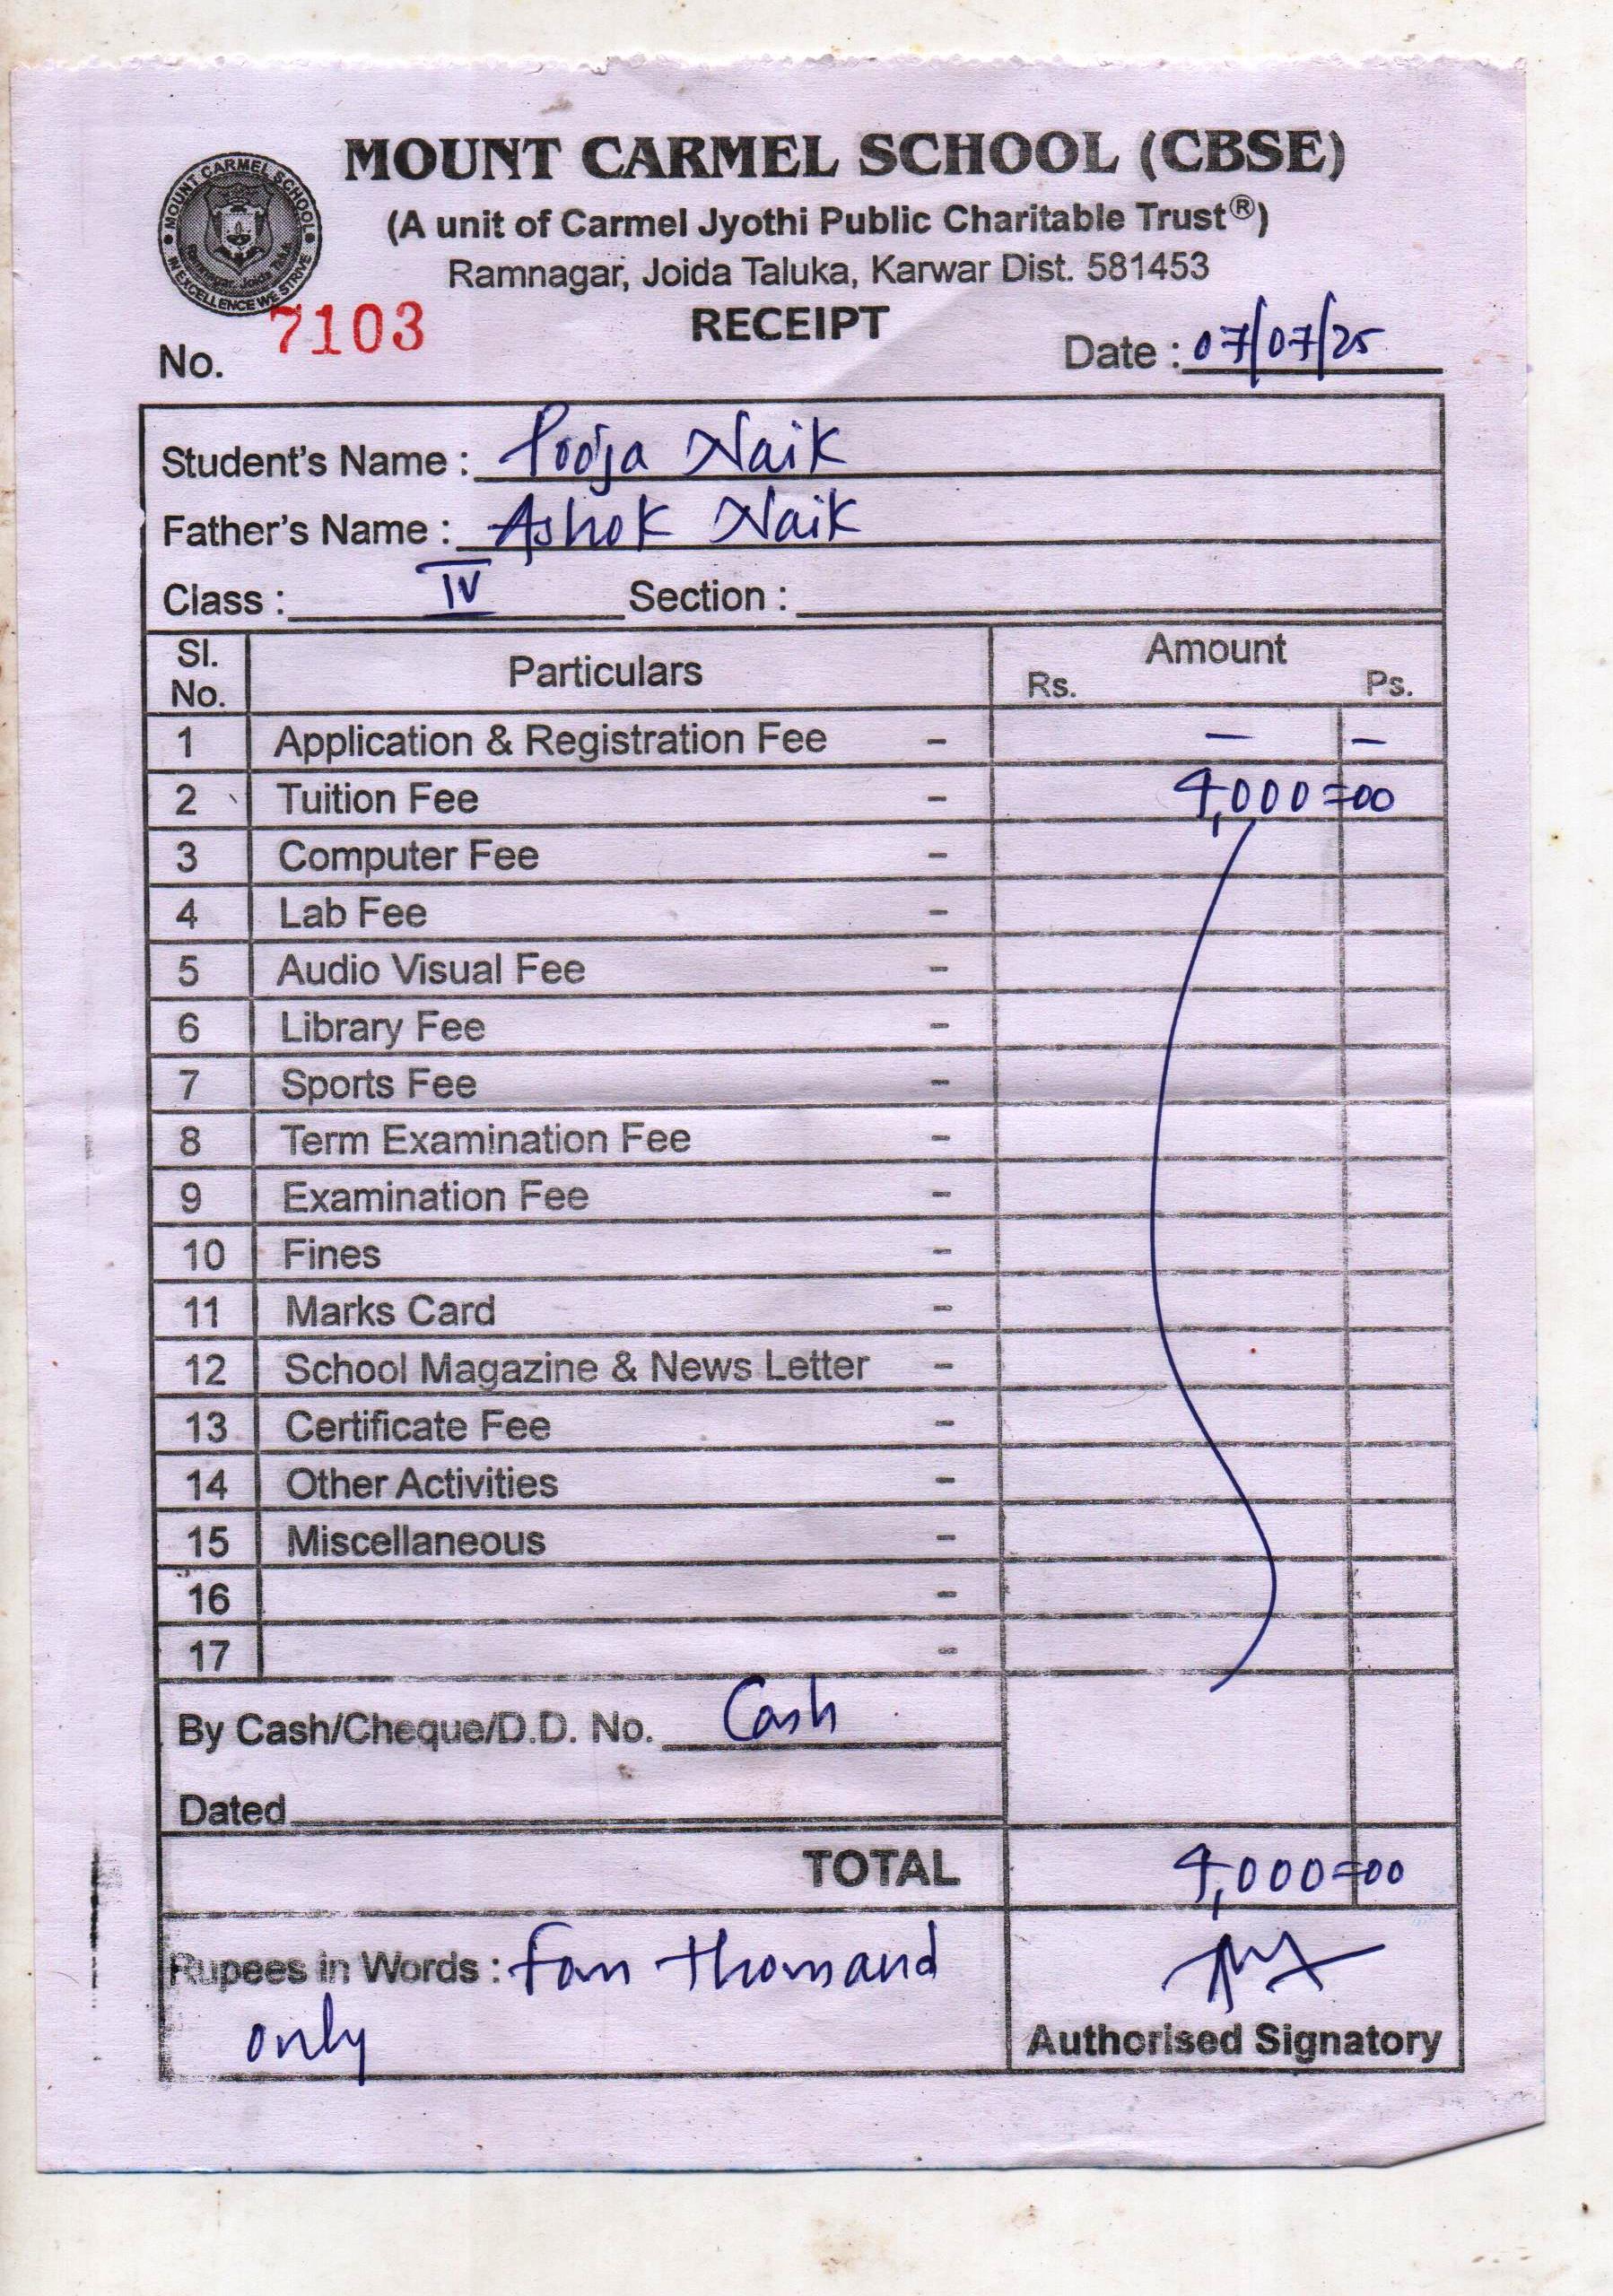 MOUNT CARMEL SCHOOL (CBSE)
(A unit of Carmel Jyothi Public Charitable Trust®)
Ramnagar, Joida Taluka, Karwar Dist. 581453
MOUNT CARMEL SCHOOL
IN EXCELLENCE WE STRIVE
RECEIPT
No. 7103 Date : 07/07/25
Student's Name : Pooja Naik
Father's Name : Ashok Naik
Class : IV Section :
Sl. No. Particulars Amount
Rs. Ps.
1 Application & Registration Fee - — —
2 Tuition Fee - 4,000=00
3 Computer Fee -
4 Lab Fee -
5 Audio Visual Fee -
6 Library Fee -
7 Sports Fee -
8 Term Examination Fee -
9 Examination Fee -
10 Fines -
11 Marks Card -
12 School Magazine & News Letter -
13 Certificate Fee -
14 Other Activities -
15 Miscellaneous -
16 -
17 -
By Cash/Cheque/D.D. No. Cash
Dated
TOTAL 4,000=00
Rupees in Words : Four Thousand
only
Authorised Signatory